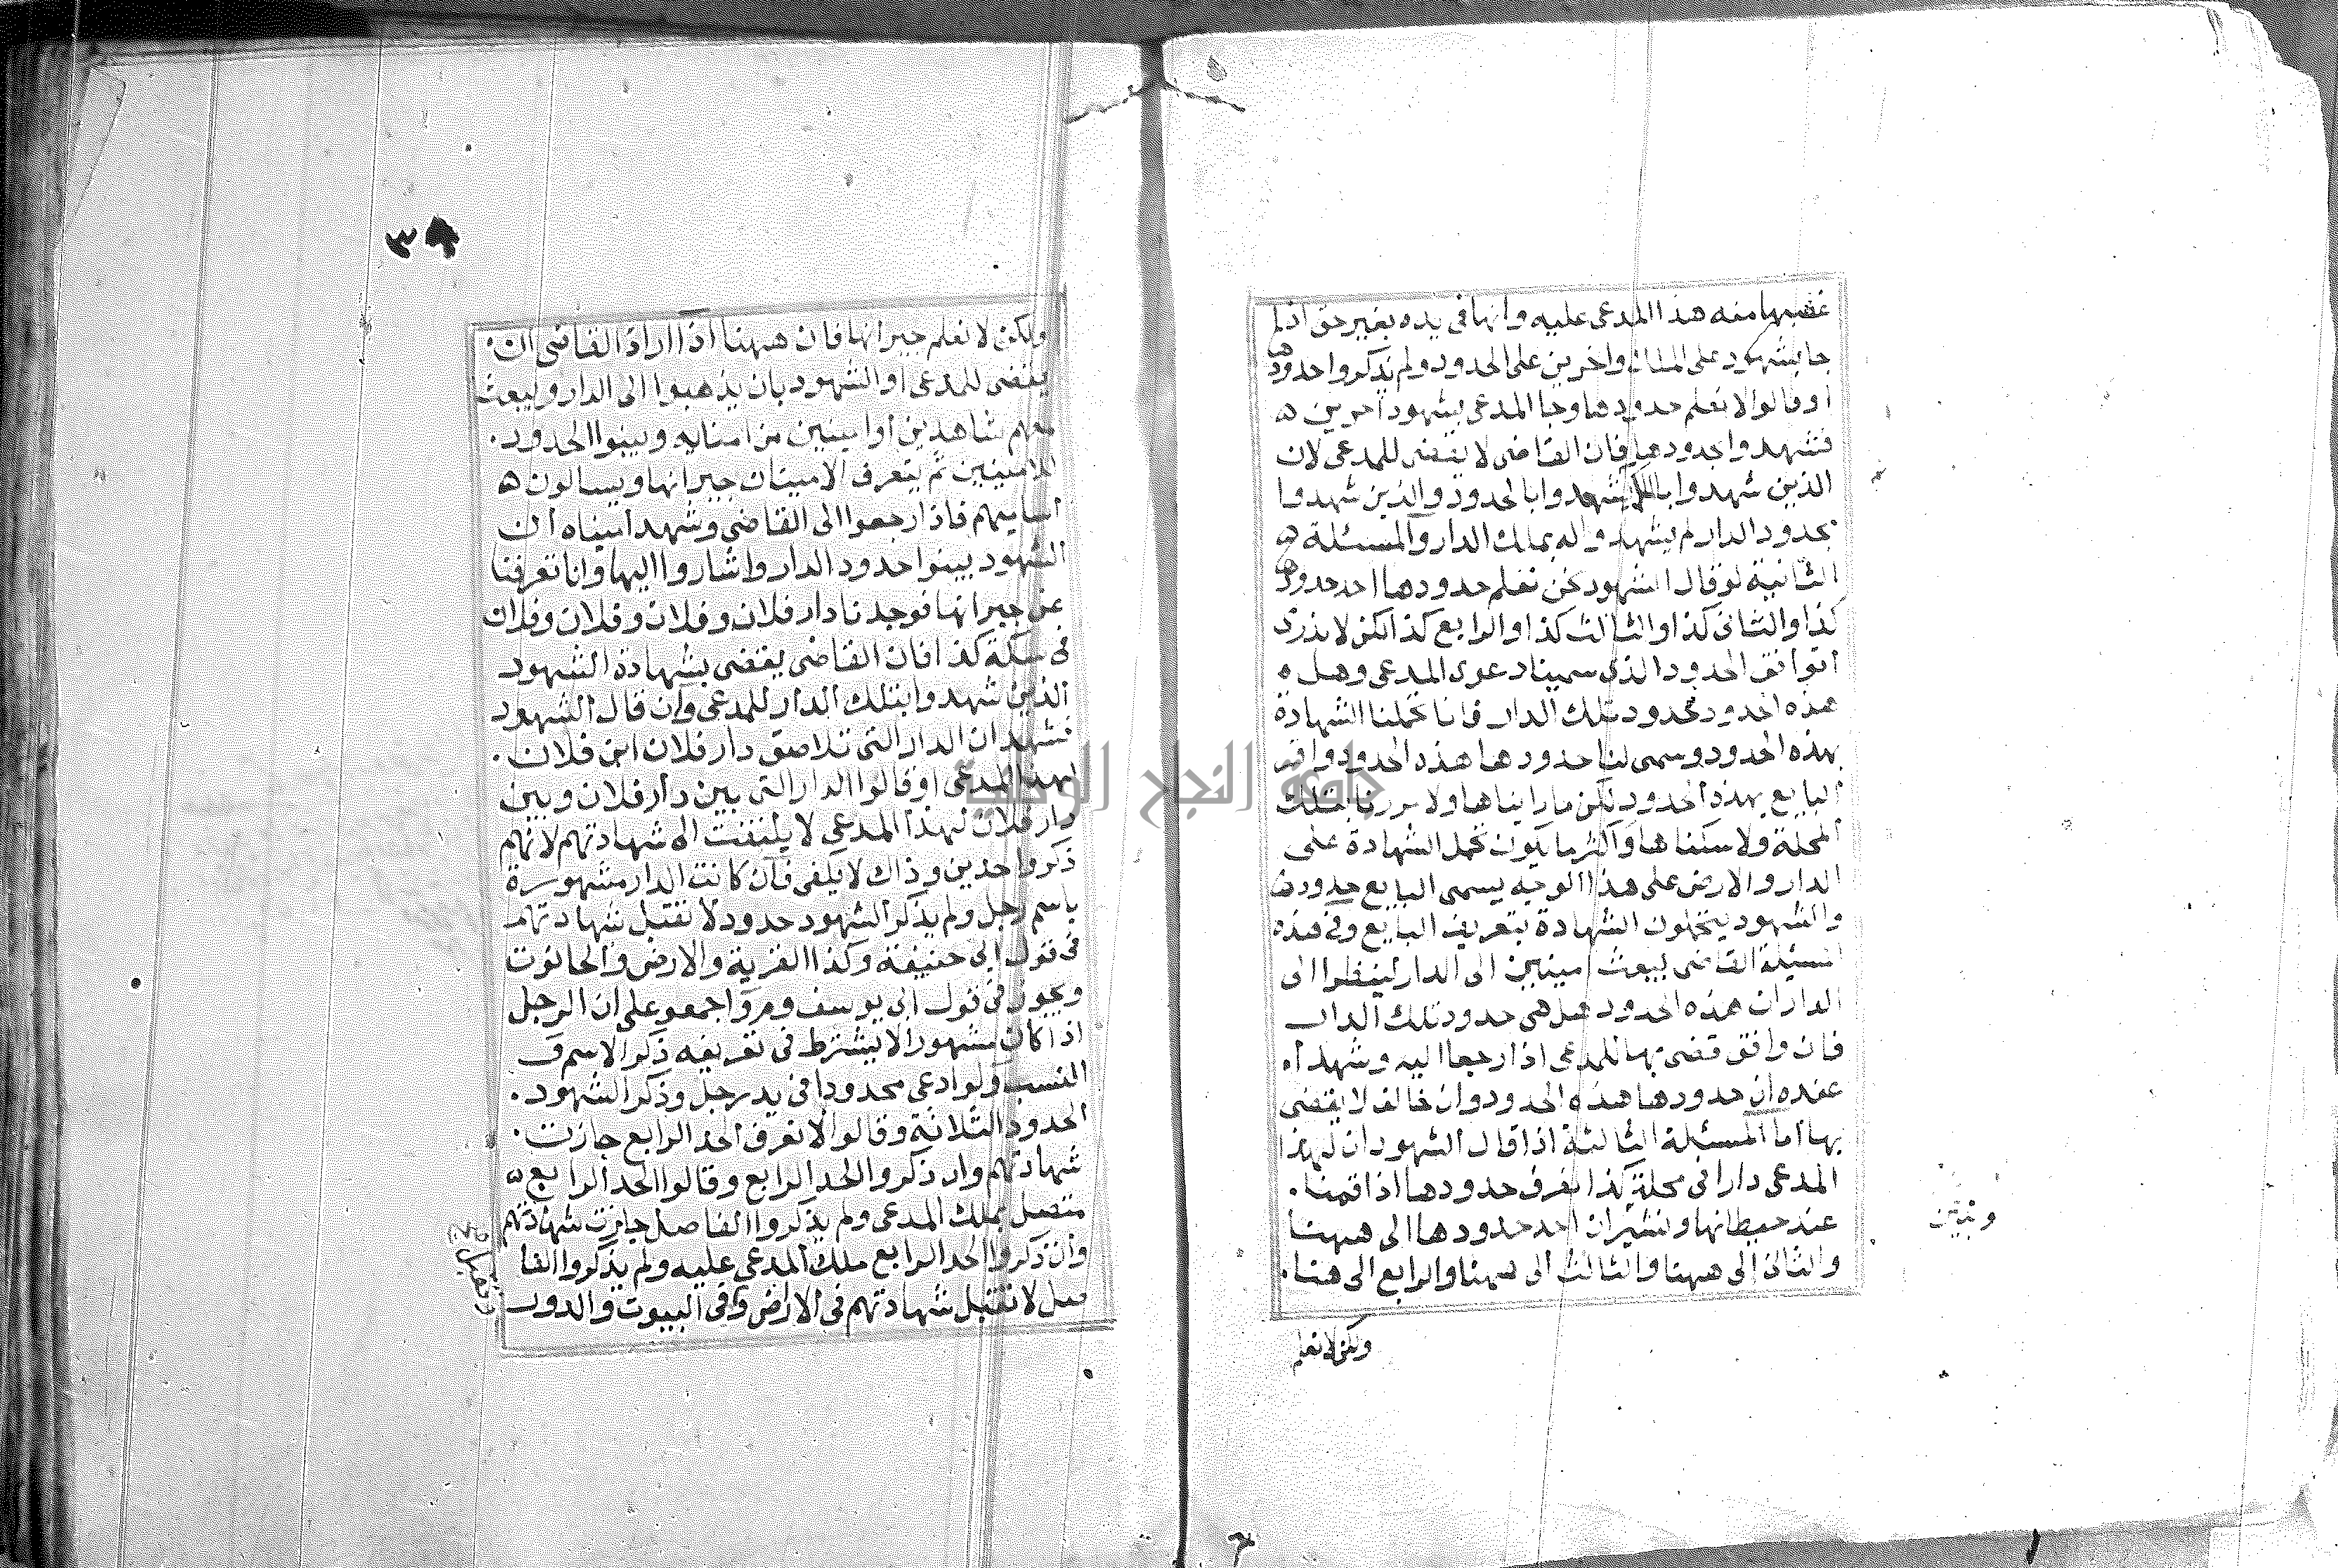 غصبها منه هذا المدعى عليه وانها فى يده بغير حق اذا لم
جا بشهود على الملك واخرين على الحدود ولم يذكروا حدودها
او قالوا لا نعلم حدودها وجا المدعى بشهود اخرين ه
فشهدوا بحدودها فان القاضى لا يقضى للمدعى لان
الذين شهدوا بالملك لم يشهدوا بالحدود والذين شهدوا
بحدود الدار لم يشهدوا له بملك الدار والمسئلة ه
الثانية لو قال الشهود نحن نعلم حدودها احد حدودها
كذا والثانى كذا والثالث كذا والرابع كذا لكن لا ندرى
اتوافق الحدود الذى سمينا دعوى المدعى وهل ه
هذه الحدود بحدود تلك الدار فانا تحملنا الشهادة
بهذه الحدود وسمى لنا حدودها هذه الحدود وافق
البايع بهذه الحدود لكن ما رايناها ولا مررنا بتلك
المحلة ولا سكناها واكثر ما يكون تحمل الشهادة على
الدار والارض على هذا الوجه يسمى البايع حدودها
والشهود يتحملون الشهادة بتعريف البايع وفى هذه
المسئلة القاضى يبعث امينين الى الدار لينظروا الى
الدار ان هذه الحدود هل هى حدود تلك الدار
فان وافق قضى بها للمدعى اذا رجعا اليه وشهدا ه
عنده ان حدودها هذه الحدود وان خالف لا يقضى
بها اما المسئلة الثالثة اذا قال الشهود ان لهذا
المدعى دارا فى محلة كذا نعرف حدودها اذا قمنا.
عند حيطانها ونشير ان احد حدودها الى ههنا
والثانى الى ههنا والثالث الى ههنا والرابع الى هنا.
ولكن لا نعلم
٣
ولكن لا نعلم جيرانها فان ههنا اذا اراد القاضى ان
يقضى للمدعى او الشهود بان يذهبوا الى الدار ويبعث
معهم شاهدين او امينين من امنايه ويبينوا الحدود.
للامينين ثم يتعرف الامينان جيرانها ويسالون ه
اساميهم فاذا رجعوا الى القاضى وشهد اميناه ان
الشهود بينوا حدود الدار واشاروا اليها وانا تعرفنا
عن جيرانها فوجدنا دار فلان وفلان وفلان وفلان
فى سكة كذا فان القاضى يقضى بشهادة الشهود
الذين شهدوا بتلك الدار للمدعى وان قال الشهود
نشهد ان الدار التى تلاصق دار فلان ابن فلان.
لهذا المدعى او قالوا الدار التى بين دار فلان وبين
دار فلان لهذا المدعى لا يلتفت الى شهادتهم لانهم
ذكروا حدين وذاك لا يكفى فان كانت الدار مشهورة
باسم رجل ولم يذكر الشهود حدود لا تقبل شهادتهم
فى قول ابى حنيفة وكذا القرية والارض والحانوت
ويجوز فى قول ابى يوسف وم واجمعو على ان الرجل
اذا كان مشهورا لا يشترط فى تعريفه ذكر الاسم و
النسب ولو ادعى محدودا فى يد رجل وذكر الشهود.
الحدود الثلاثة وقالوا لا نعرف الحد الرابع جازت.
شهادتهم وان ذكروا الحد الرابع وقالوا الحد الرابع ه
متصل بملك المدعى ولم يذكروا الفاصل جازت شهادتهم
وان ذكروا الحد الرابع ملك المدعى عليه ولم يذكروا الفا
صل لا تقبل شهادتهم فى الاراض وفى البيوت والدور
جامعة النجاح الوطنية